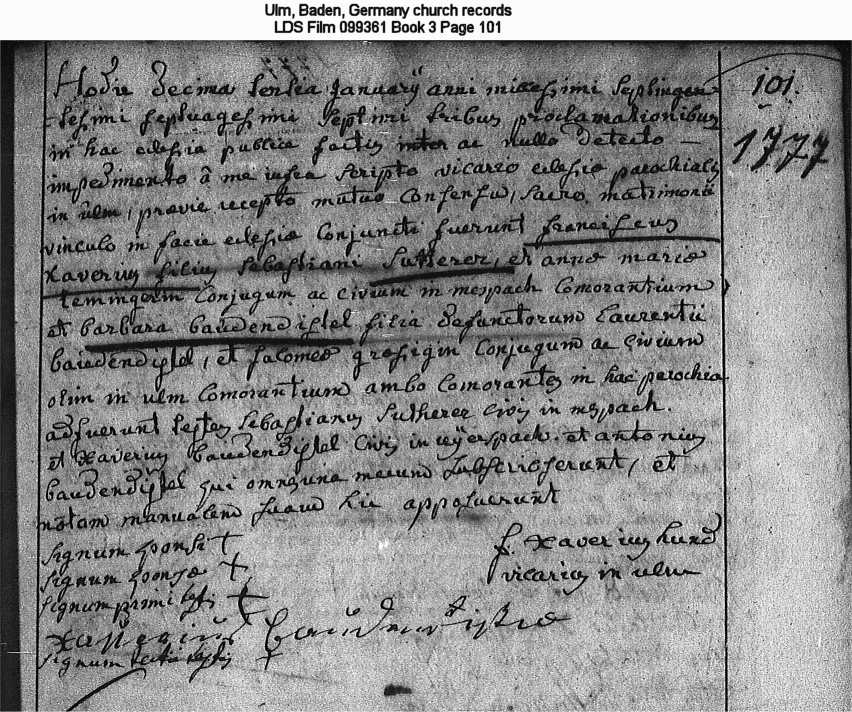 Ulm, Baden, Germany church records
LDS Film 099361 Book 3 Page 101
101.
1777
Hodie decima tertia Januarii anni millesimi septingen-
tesimi septuagesimi septimi tribus proclamationibus
in hac eclesia publice factis ac nullo detecto —
impedimento a me infra scripto vicario eclesie parochialis
in ulm, previe recepto mutuo consensu, sacro matrimonii
vinculo in facie eclesie conjuncti fuerunt franciscus
Xaverius filius Sebastiani Sutherer, et anne marie
temingerin conjugum ac civium in mespach comorantium
et barbara baudendistel filia defunctorum laurentii
baudendistel, et salomee conjugum ac civium
olim in ulm comorantium ambo comorantes in hac parochia
adfuerunt testes Sebastianus Sutherer civis in mespach.
et Xaverius baudendistel civis in et antonius
baudendistel qui omnes una mecum subscripserunt, et
notam manualem suam hic apposuerunt
signum sponsi +
signum sponse +
signum primi testis +
f. Xaverius hund
vicarius in ulm
Xaverius baudendistel
signum testis +